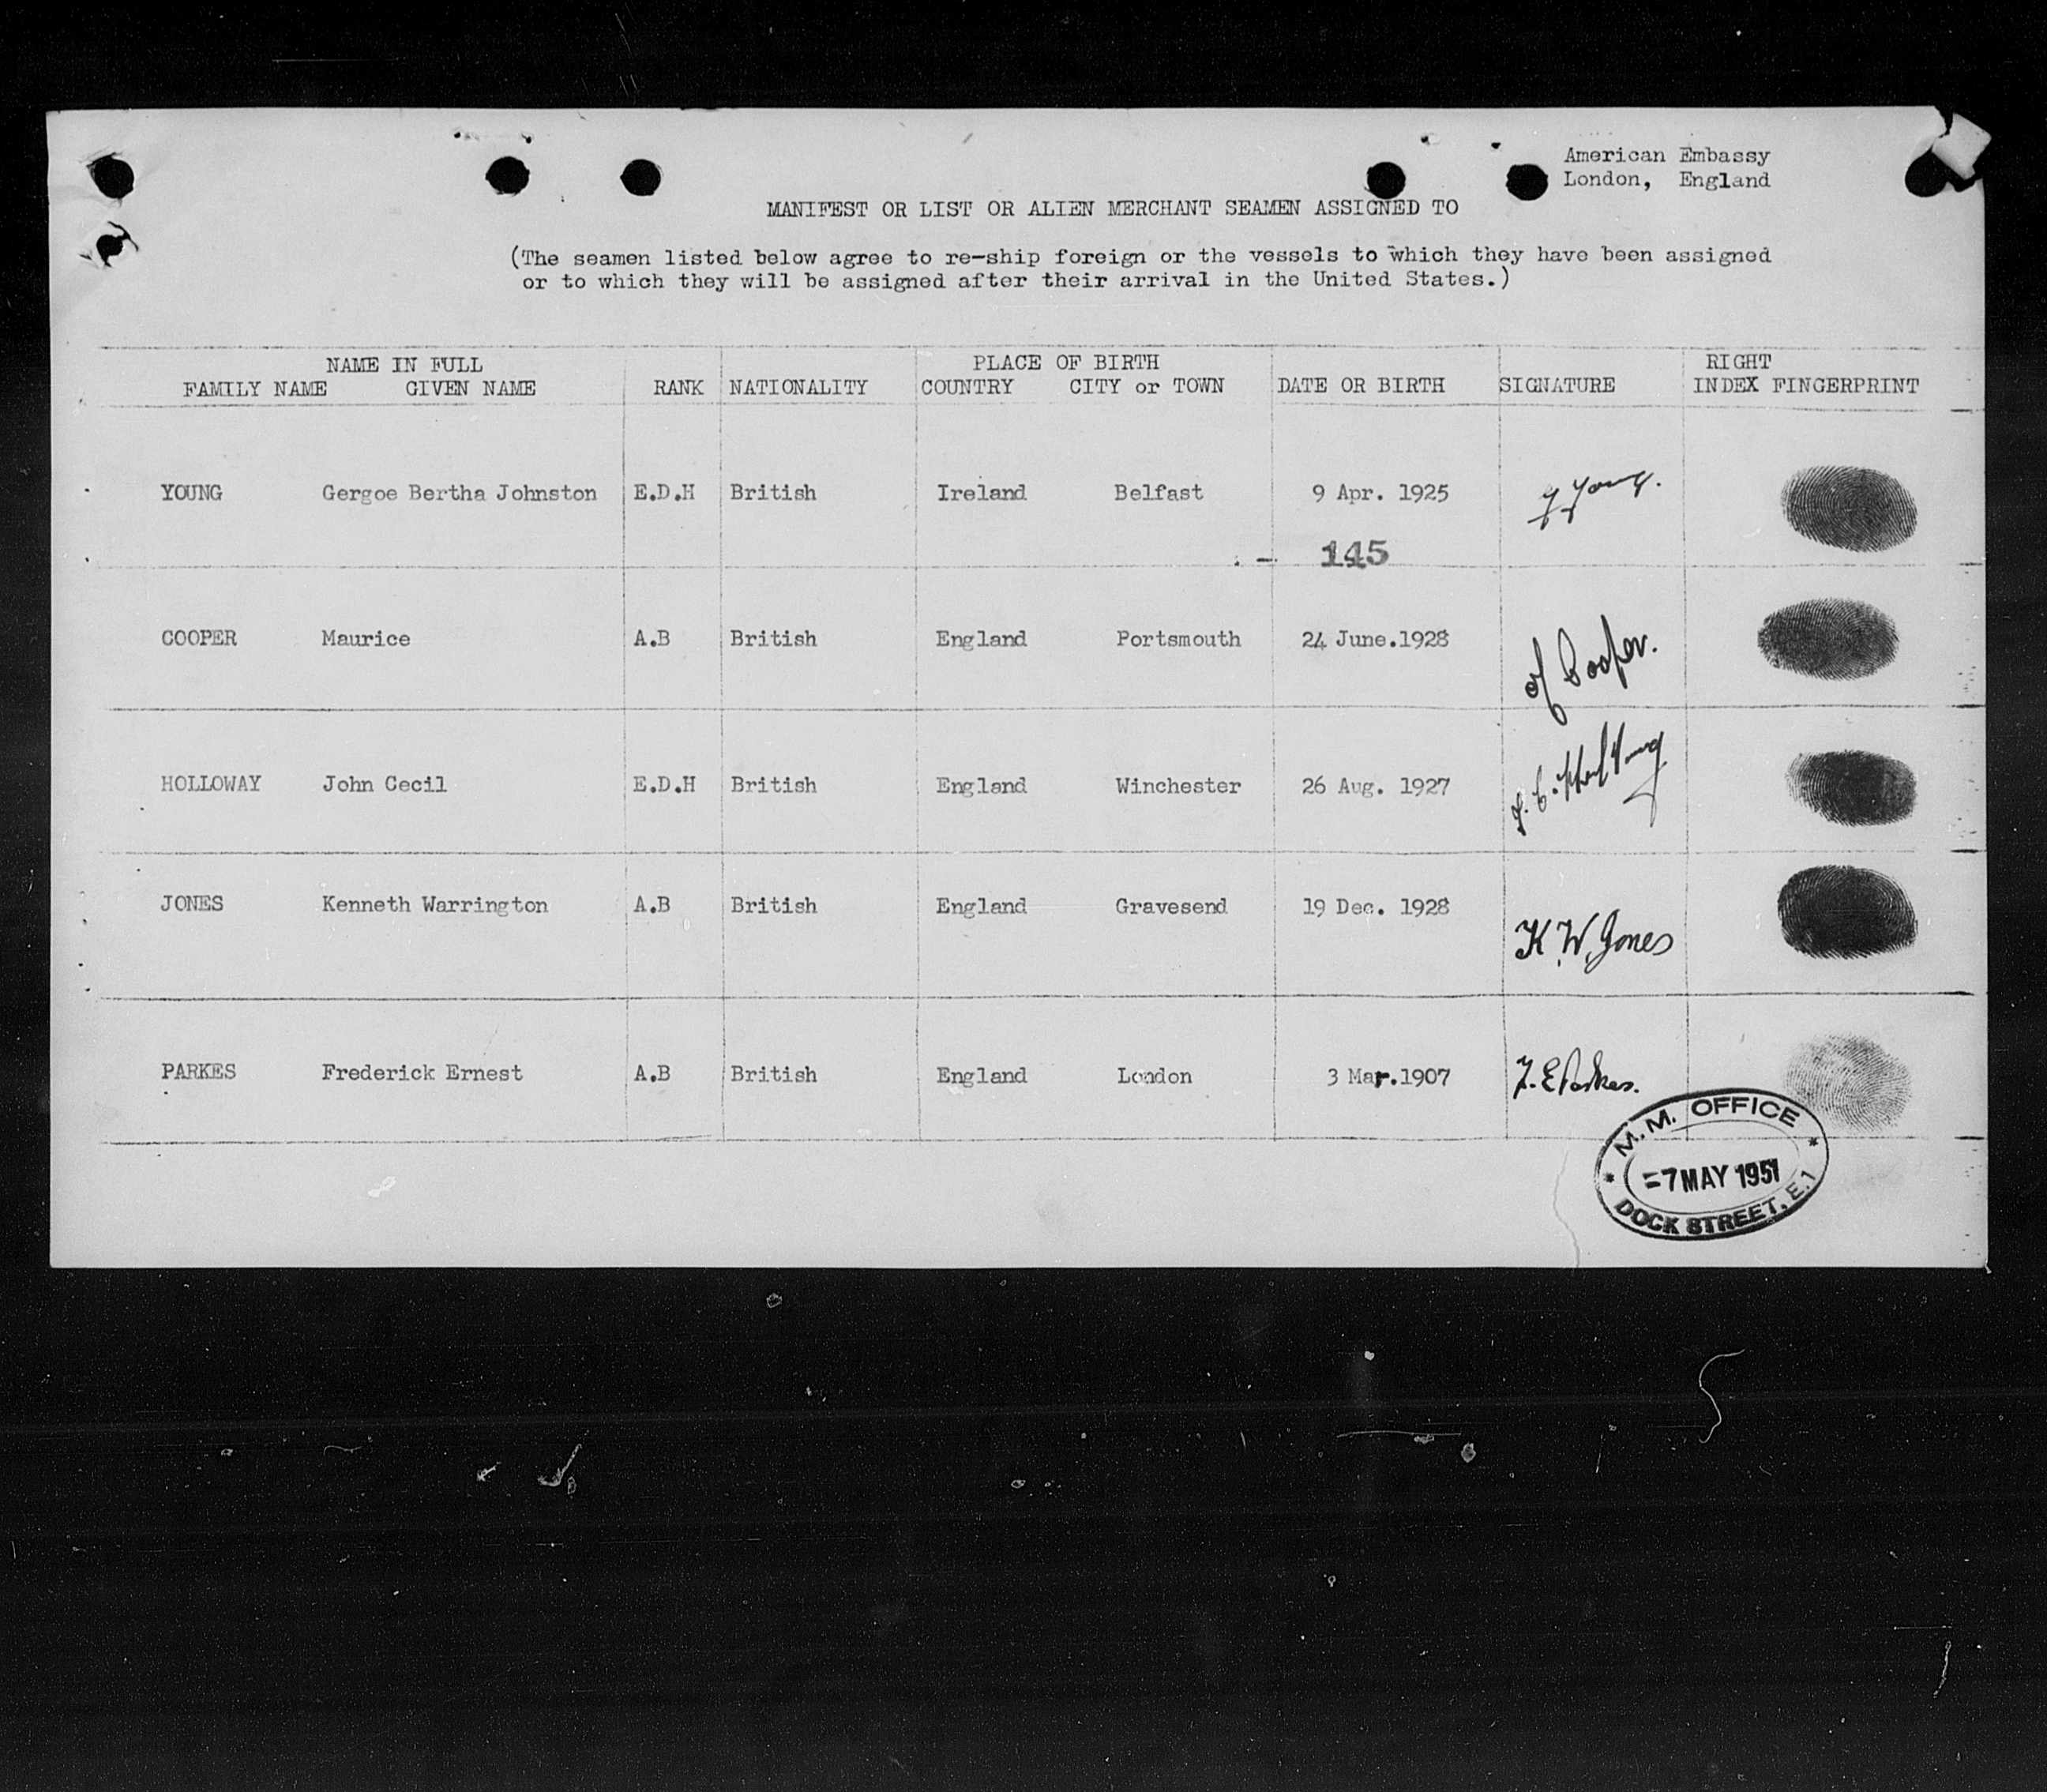 American Embassy
London, England
MANIFEST OR LIST OR ALIEN MERCHANT SEAMEN ASSIGNED TO
(The seamen listed below agree to re-ship foreign or the vessels to which they have been assigned
or to which they will be assigned after their arrival in the United States.)
NAME IN FULL PLACE OF BIRTH RIGHT
FAMILY NAME GIVEN NAME RANK NATIONALITY COUNTRY CITY or TOWN DATE OR BIRTH SIGNATURE INDEX FINGERPRINT
YOUNG Gergoe Bertha Johnston E.D.H British Ireland Belfast 9 Apr. 1925 Young.
145
COOPER Maurice A.B British England Portsmouth 24 June.1928 Cooper.
HOLLOWAY John Cecil E.D.H British England Winchester 26 Aug. 1927
JONES Kenneth Warrington A.B British England Gravesend 19 Dec. 1928 K.W.Jones
PARKES Frederick Ernest A.B British England London 3 Mar.1907 F.E Parkes.
M.M. OFFICE
-7 MAY 1951
DOCK STREET, E.1